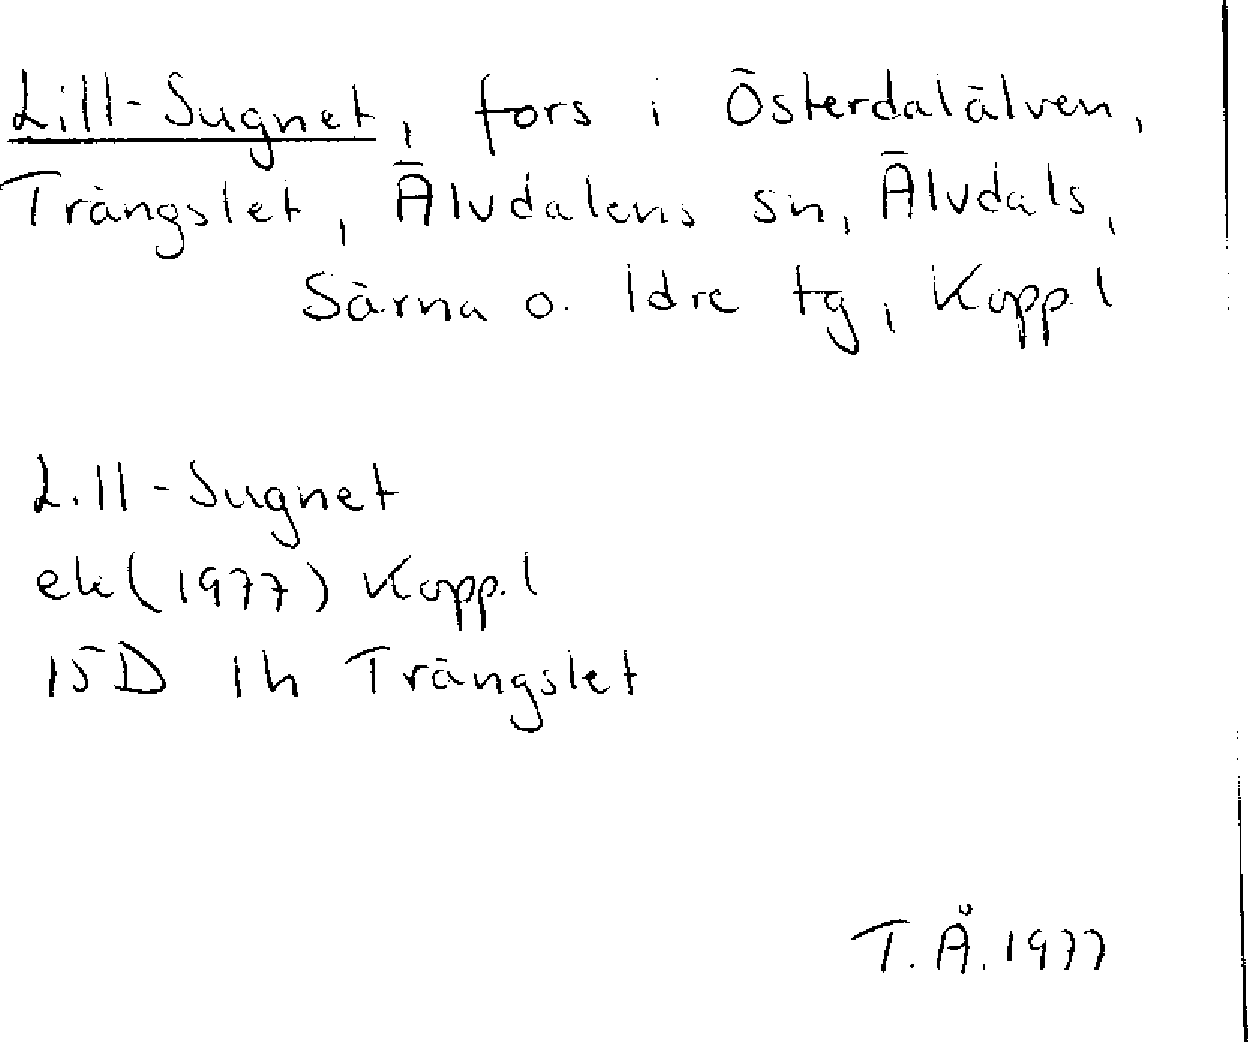 Lill-Sugnet, fors i Österdalälven,
Trängslet, Älvdalens sn, Älvdals,
Särna o. Idre tg, Kopp. l
Lill-Sugnet
ek (1977) Kopp. l
15D 1h Trängslet
T.Å. 1977